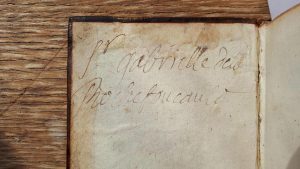 Sr gabrielle de la
Rochefoucauld